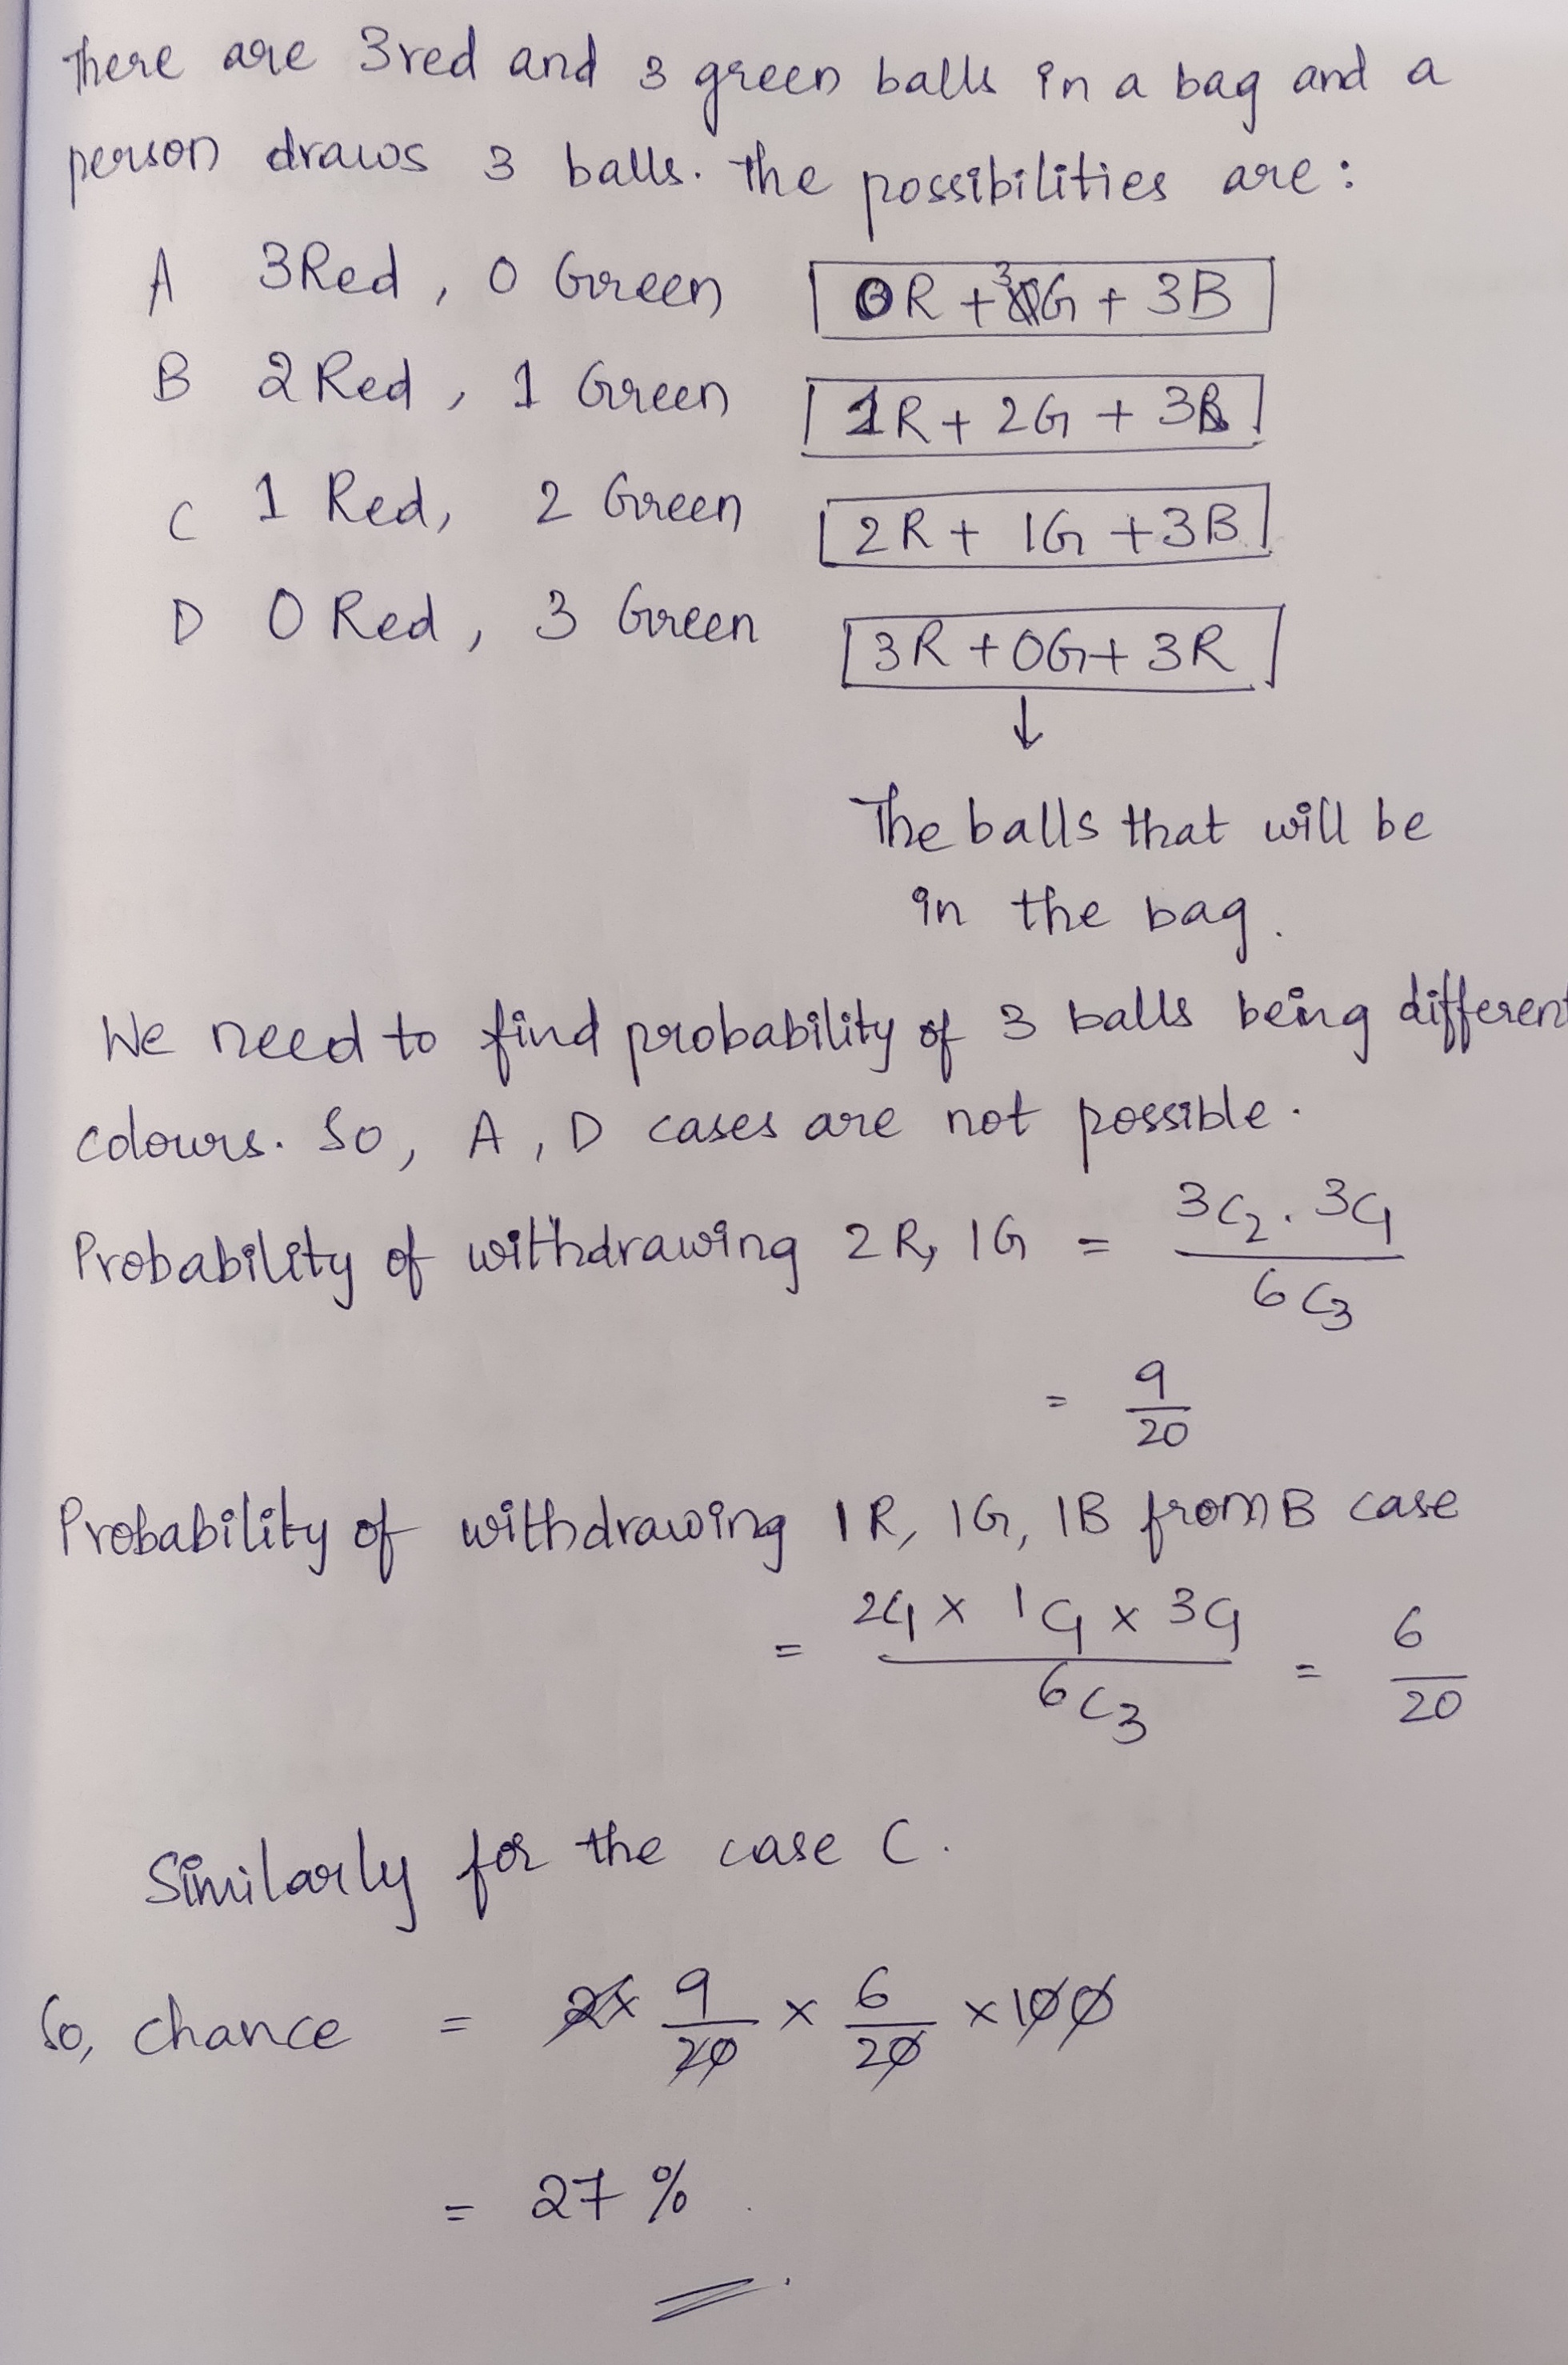 There are 3 red and 3 green balls in a bag and a
person draws 3 balls. The possibilities are :
A 3 Red , 0 Green 0R + 3G + 3B
B 2 Red , 1 Green 1R + 2G + 3B
C 1 Red, 2 Green 2R + 1G + 3B
D 0 Red , 3 Green 3R + 0G + 3R
↓
The balls that will be
in the bag.
We need to find probability of 3 balls being different
colours. So, A , D cases are not possible.
Probability of withdrawing 2R, 1G = 3C2 . 3C1 / 6C3
= 9/20
Probability of withdrawing 1R, 1G, 1B from B case
= 2C1 x 1C1 x 3C1 / 6C3 = 6/20
Similarly for the case C.
So, chance = 2x 9/20 x 6/20 x 100
= 27 %